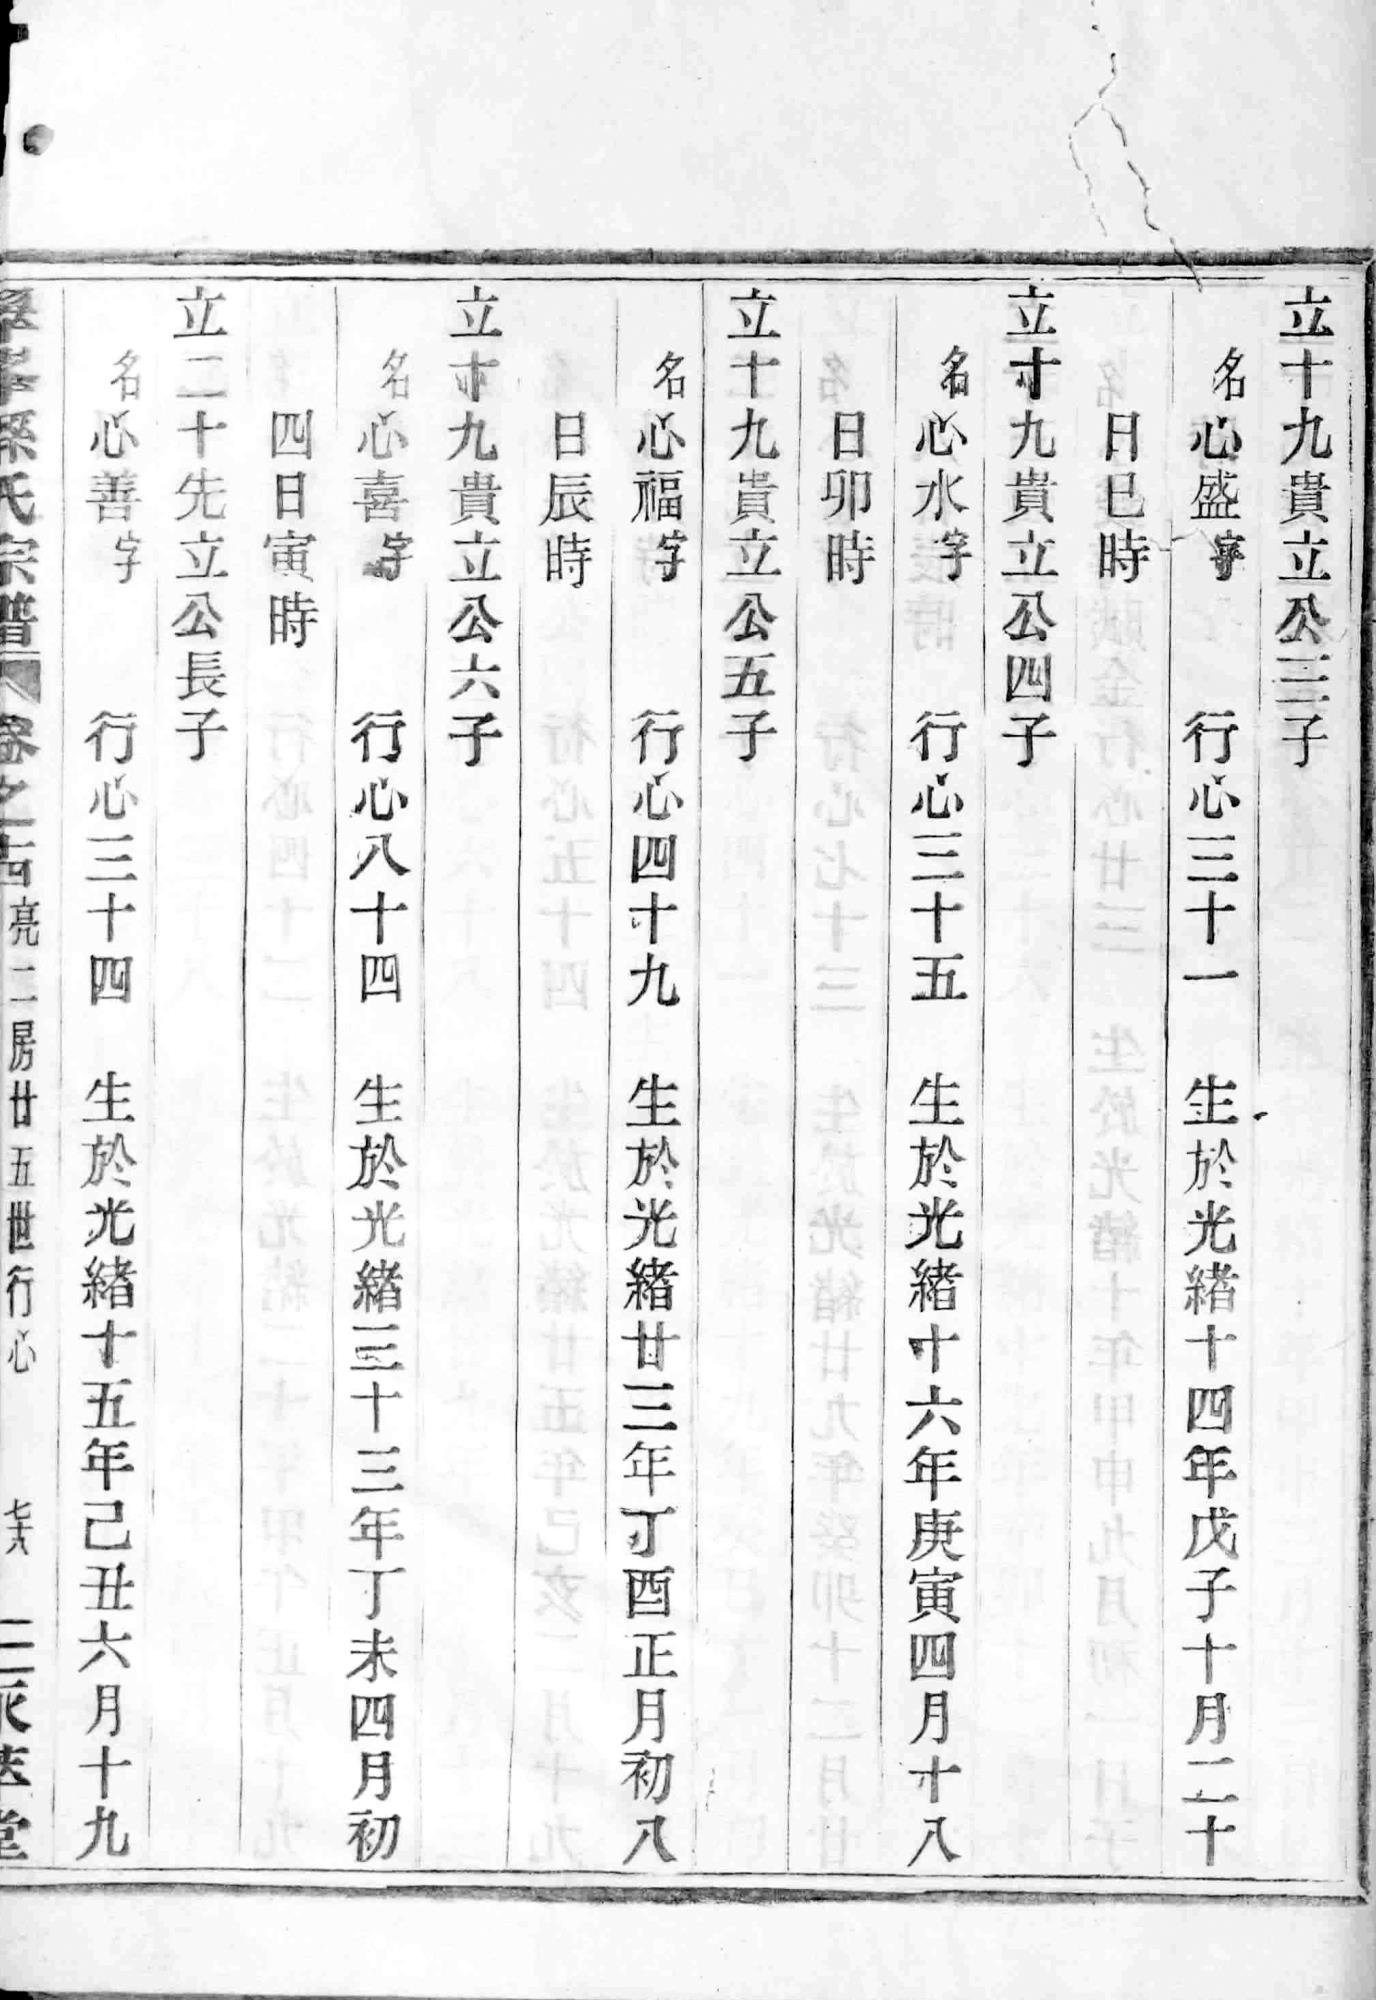 立十九貴立公三子
名心盛字　行心三十一　生於光緒十四年戊子十月二十
日巳時
立十九貴立公四子
名心水字　行心三十五　生於光緒十六年庚寅四月十八
日卯時
立十九貴立公五子
名心福字　行心四十九　生於光緒廿三年丁酉正月初八
日辰時
立十九貴立公六子
名心喜字　行心八十四　生於光緒三十三年丁未四月初
四日寅時
立二十先立公長子
名心善字　行心三十四　生於光緒十五年己丑六月十九
孫氏宗譜　卷之　亮二房廿五世行心　堂